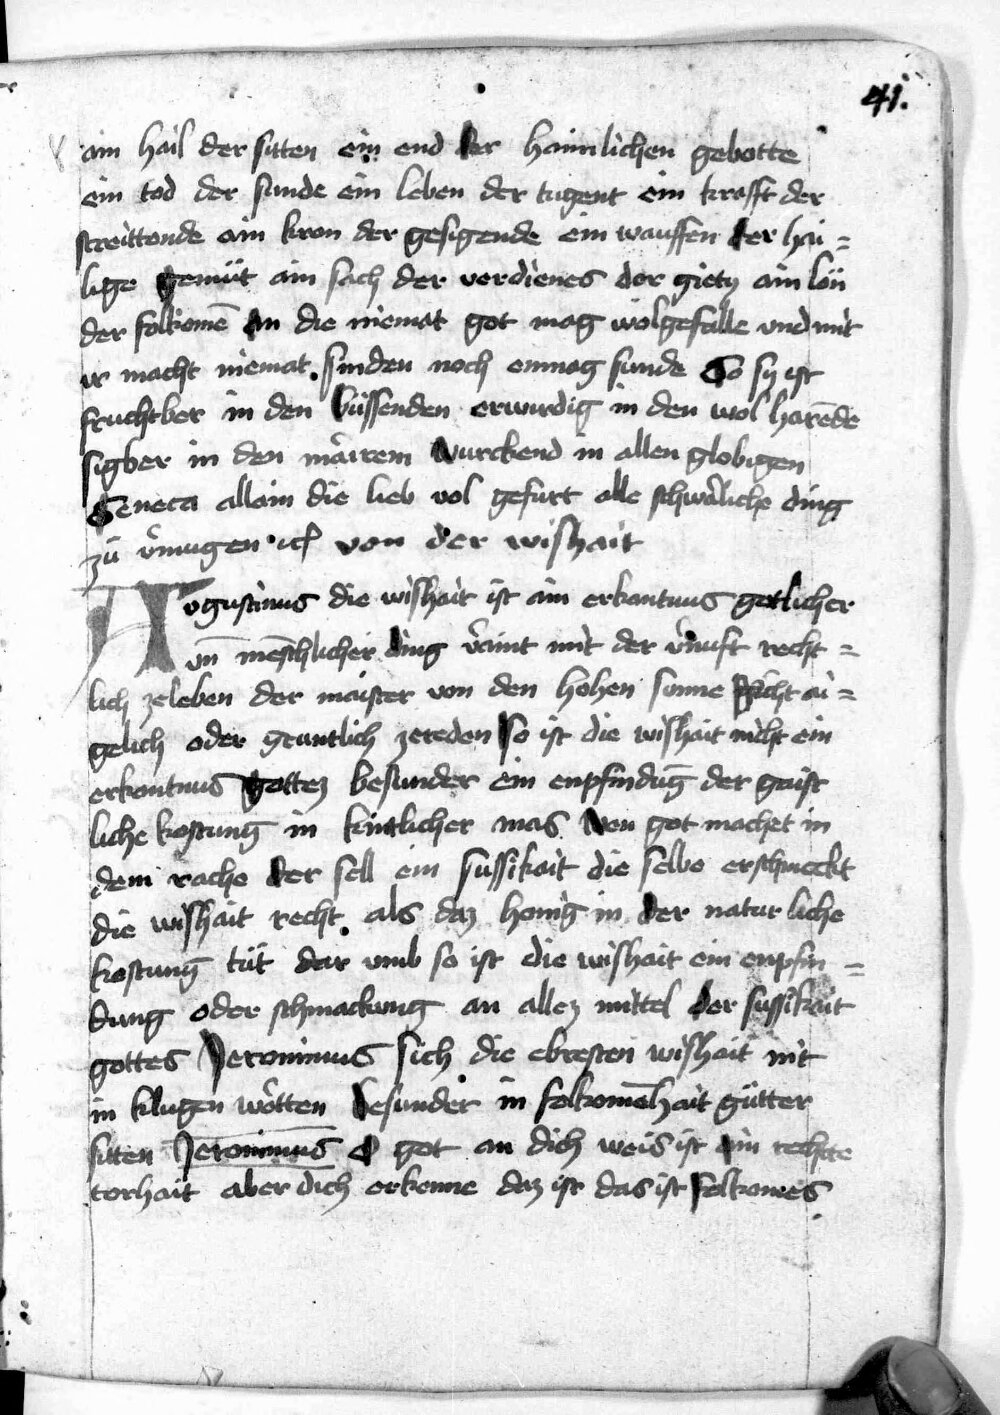 41.
ain hail der sitten ein end der haimlichen gebotte
ein tod der sunde ein leben der tugent ein krafft der
streittende ain kron der gesigende ein wauffen der hai=
lige gemüt ain sach der verdienes der gietz ain lon
der folkomē an die niemat got mag wolgefalle und mit
ir macht niemat sinden noch enmag sunde So sy ist
fruchtber in den büssenden erwirdig in den wol harēde
sigber in den mairem wurckend in allen globigen
Seneca allain die lieb vol gefurt alle schwäliche ding
zü v̄mugen ich von der wishait
Augustinus die wishait ist ain erkantnus götlicher
vn̄ mēschlicher ding v̄aint mit der v̄nuft recht=
lich zeleben der maister von den hohen sinne spricht ai=
gelich oder gruntlich zereden so ist die wishait nicht ein
erkantnus gottez besunder ein enpfindūg der gaist
liche kostung in kintlicher mas wen got machet in
dem rache der sell ein sussikait die selbe erschmeckt
die wishait recht als daz honig in der natur liche
kostung tüt dar vmb so ist die wishait ein enpfin=
dung oder schmackung an allez mittel der sussikait
gottes Jeronimus sich die ebresten wishait nit
in klugen wötten besunder in folkomēhait gütter
sitten Jeronimus O got an dich weis ist ain rechte
torhait aber dich erkenne daz ist das ist folkomes